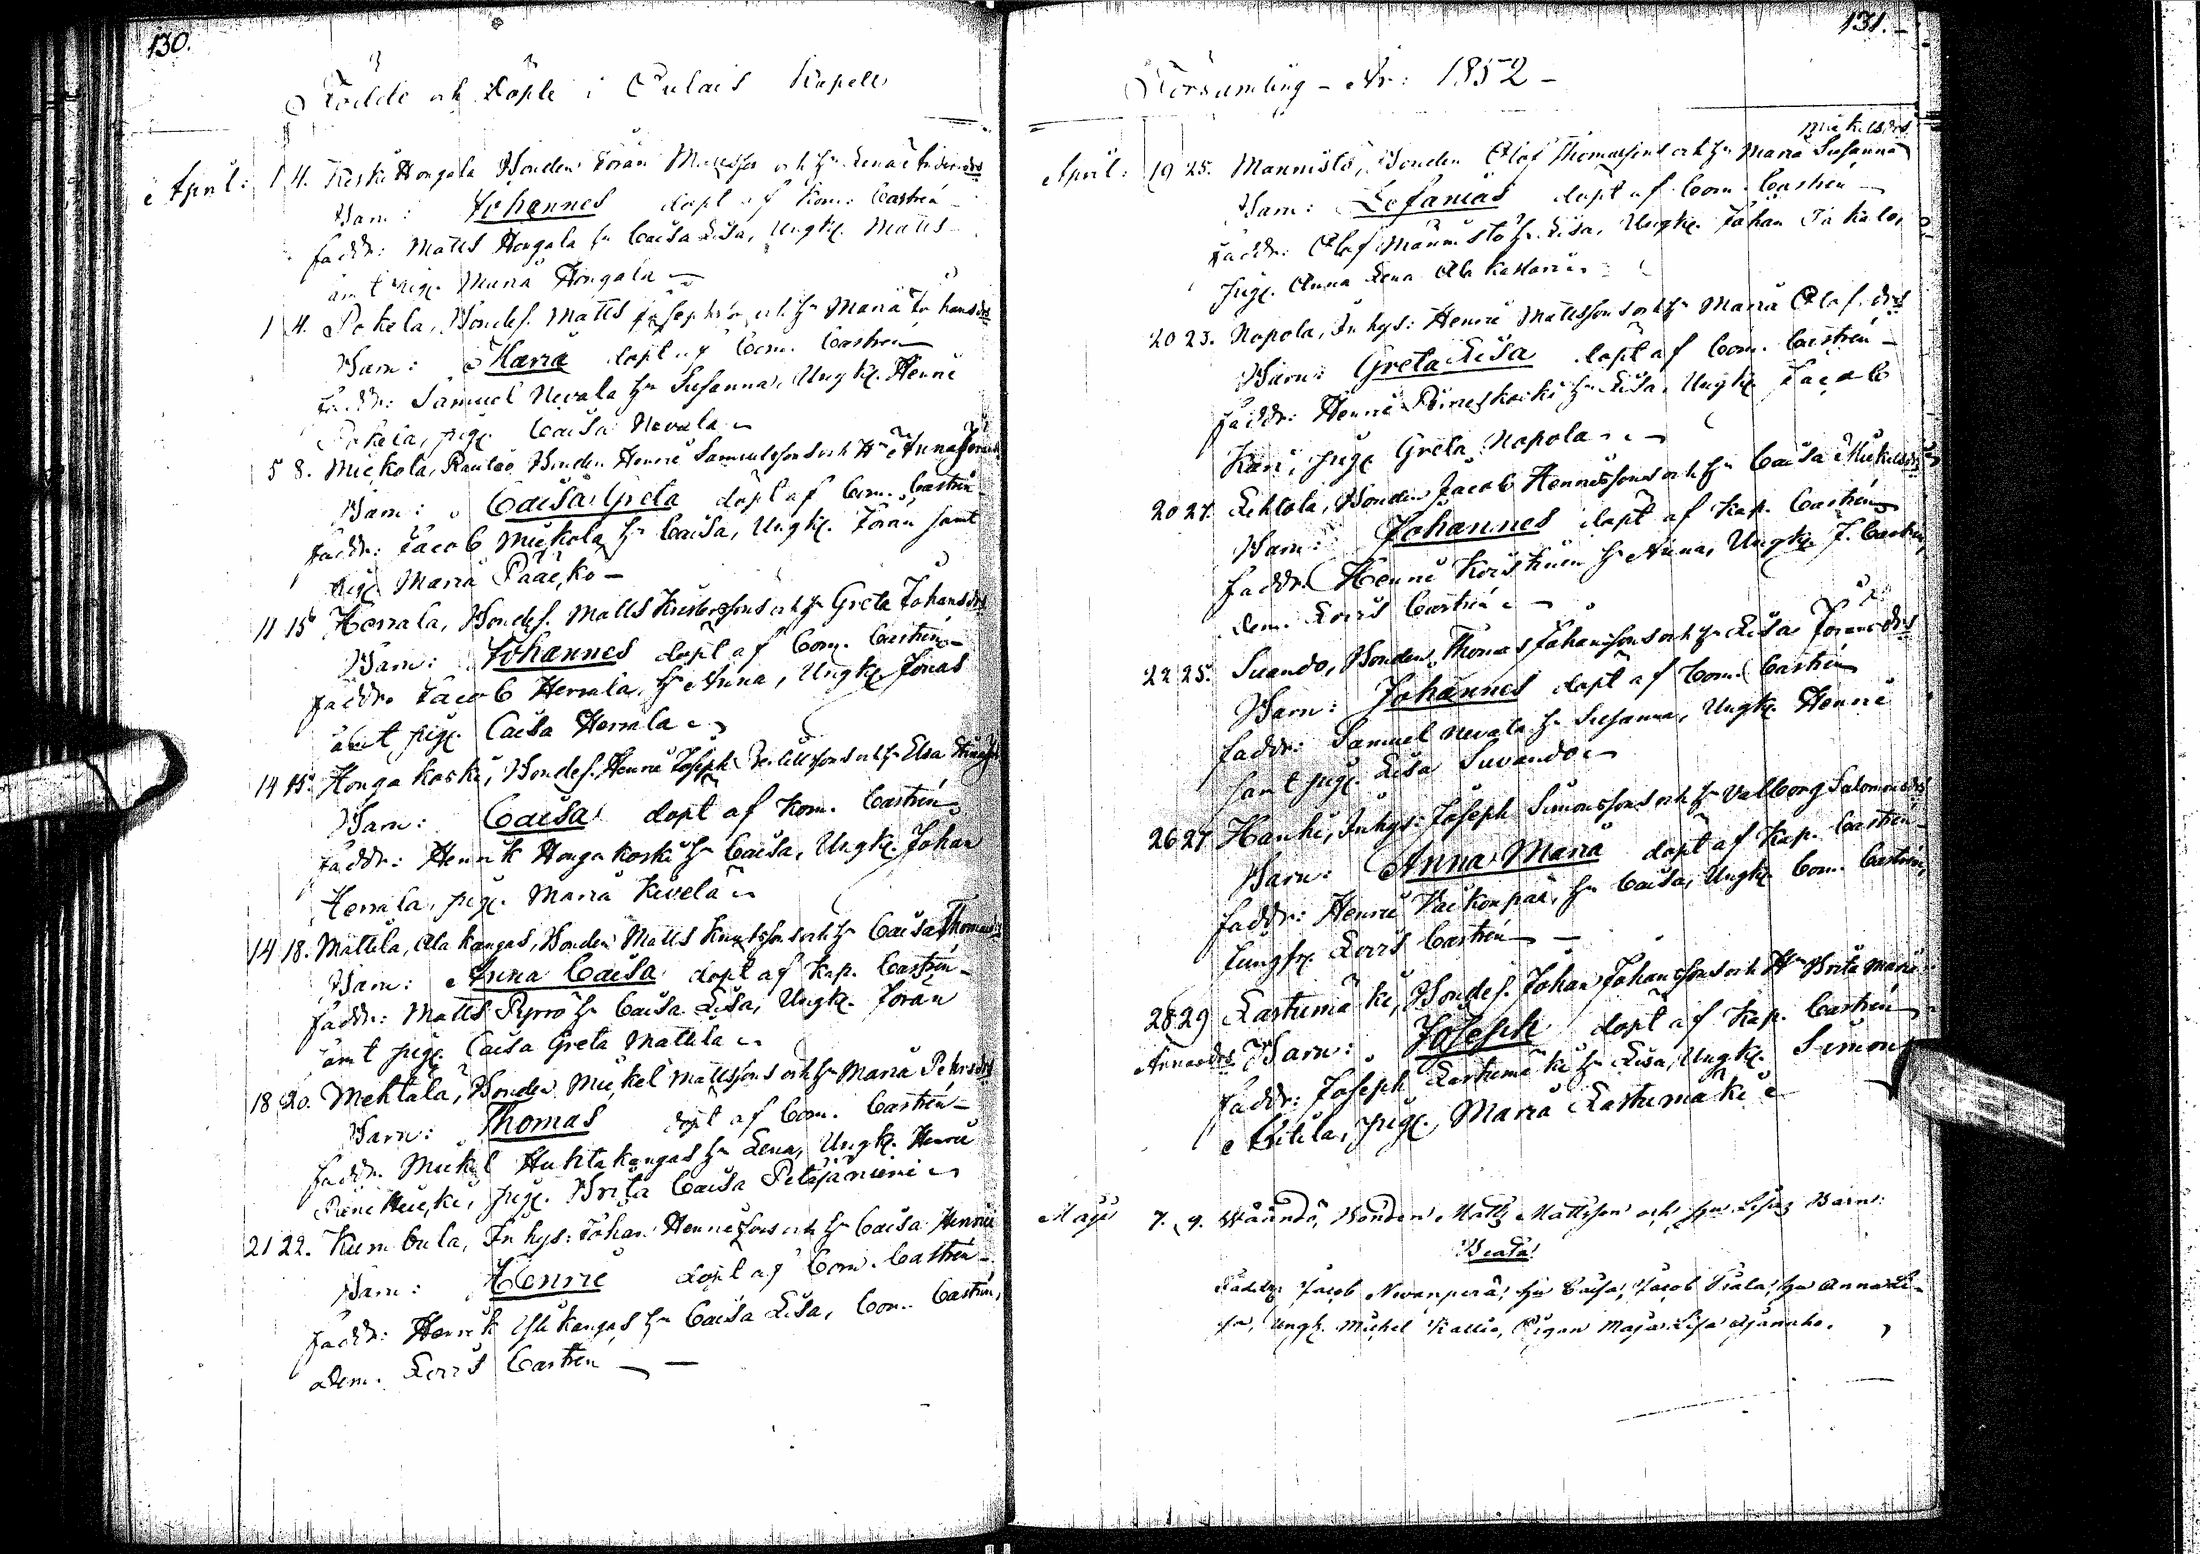 130.
Födde och Döpte i Pulais Kapell
April: 1 4. Keski Hongala Bonden Jöran Mattsson och H. Lena
Barn: Johannes döpt af Kom. Castrén
Faddr: Matts Hongala h. Caisa Lisa, Ungk. Matts
samt pig. Maria Hongala
1 4. Pokela, Bondes. Matts Josephss. och H. Maria Johansdr
Barn: Maria döpt af Com. Castrén
Faddr: Samuel Nevala h. Susanna, Ungk. Henric
Pokela, pig. Caisa Nevala
5 8. Mickola, Rautio, Bonden Henric Samuelsson och H. Anna Jöransdr
Barn: Caisa Greta döpt af Com. Castrén
Faddr: Jacob Mickola h. Caisa, Ungk. Jöran samt
pig. Maria Pääcko
11 15 Herrala, Bondes. Matts Kristersson och H. Greta Johansdr
Barn: Johannes döpt af Com. Castrén
Faddr. Jacob Herrala, h. Anna, Ungk. Jonas
samt pig. Caisa Herrala
14 15. Honga koski, Bondes. Henric Joseph och H. Elsa
Barn: Caisa döpt af Kom. Castrén
Faddr: Henrik Honga koski h. Caisa, Ungk. Johan
Herrala, pig. Maria Kivelä
14 18. Mattila, Ala kangas, Bonden Matts Knutsson och H. Caisa Thomasdr
Barn: Anna Caisa döpt af Kap. Castrén
Faddr: Matts Pyrrö h. Caisa Lisa, Ungk. Jöran
samt pig. Caisa Greta Mattila
18 20. Mehtälä, Bonden Mickel Mattsson och H. Maria Petersdr
Barn: Thomas döpt af Com. Castrén
Faddr. Mickel Huhtakangas h. Lena, Ungk. Henric
pig. Brita Caisa Petäjäniemi
21 22. Kumbula, Inhys: Johan Henricsson och H. Caisa Henrics
Barn: Henric döpt af Com. Castrén
Faddr: Henrik Yli kangas h. Caisa Lisa, Com. Castrén,
Dem. Lovis Castrén
131.
Församling - År: 1852 -
Mickelsdr
April: 19 25. Mannistö, Bonden Olof Thomasson och H. Maria Susanna
Barn: Sefanias döpt af Com. Castrén
Faddr: Olof Mannistö h. Lisa, Ungk. Johan
Pig. Anna Lena
20 23. Napola, Inhys: Henric Mattsson och H. Maria Olofsdr
Barn: Greta Lisa döpt af Com. Castrén
Faddr: Henric h. Lisa, Ungk. Jacob
Kari, pig. Greta Napola
20 27. Lehtola, Bonden Jacob Henricsson och H. Caisa Mickelsdr
Barn: Johannes döpt af Kap. Castrén
Faddr. Henric Koiskuen h. Anna, Ungk. J. Castrén,
Dem. Lovis Castrén
22 25. Suando, Bonden Thomas Johansson och H. Lisa Jöransdr
Barn: Johannes döpt af Com. Castrén
Faddr: Samuel Nevala h. Susanna, Ungk. Henric
samt pig. Lisa Suvando
26 27 Hanhi, Inhys: Joseph Simonsson och H. Valborg Salomonsdr
Barn: Anna Maria döpt af Kap. Castrén
Faddr: Henric Väikonpää, h. Caisa, Ungk. Com. Castrén,
Jungfr. Lovis Castrén
28 29 Lastumäki, Bondes. Johan Johansson och H. Brita Maria
Annasdr Barn: Joseph döpt af Kap. Castrén
Faddr: Joseph Lastumäki h. Lisa, Ungk. Simon
pig. Maria Lastumäki
Maji 7. 9. Bonden Matts Mattsson och hu Lisas Barn:
Beata!
Faddr: Jacob Nivanperä, hu Caisa, Jacob hu Anna Li-
sa, Ungk. Michel Kallio, Pigan Maja Lisa